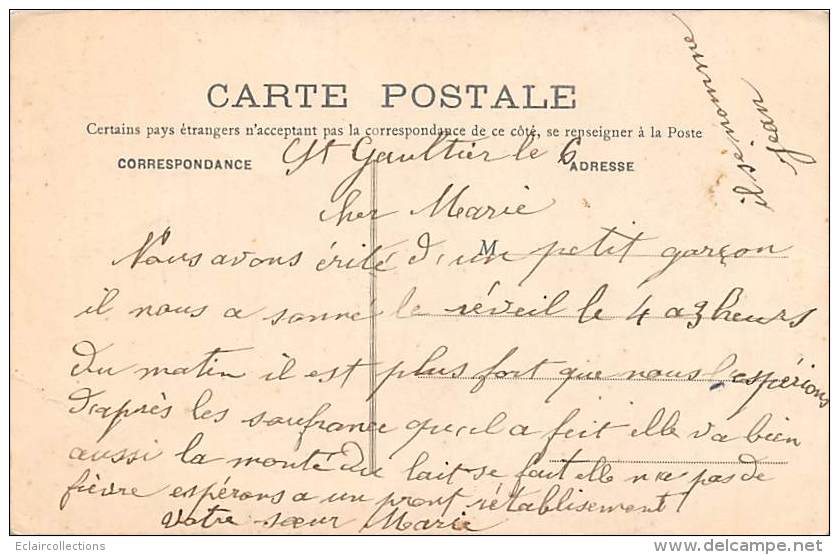 CARTE POSTALE
Certains pays étrangers n'acceptant pas la correspondance de ce côté, se renseigner à la Poste
CORRESPONDANCE
ADRESSE
St Gaultier le 6
cher Marie
M
Nous avons érité d'un petit garçon
il nous a sonné le réveil le 4 a 3 heurs
du matin il est plus fort que nous l'espérions
d'après les soufrance qu'il a feit elle va bien
aussi la monté du lait se fait elle n'a pas de
fièvre espérons a un pront rétablisement
Votre sœur Marie
il se nomme
Jean
Eclaircollections
© delcampe.net